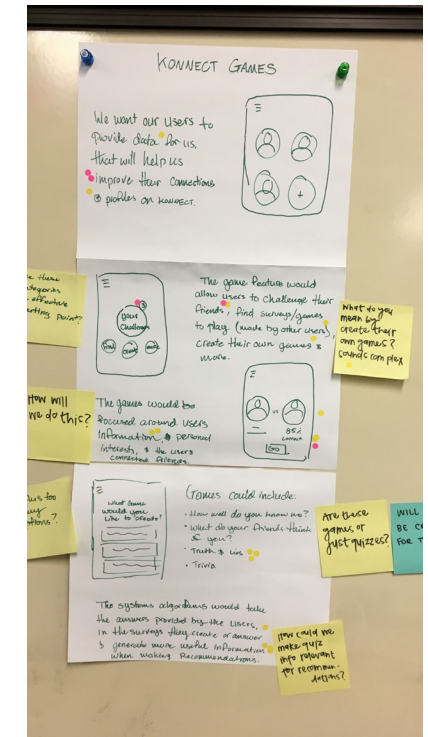 KONNECT GAMES
We want our users to
provide data for us,
that will help us
improve their connections
& profiles on KONNECT.
these
ategories
effective
rting point?
3
Your
Challenges
Find
Create
more
The game feature would
allow users to challenge their
friends, find surveys/games
to play (made by other users),
create their own games &
more.
What do you
mean by
create their
own games?
sounds complex
How will
we do this?
The games would be
focused around users
information, & personal
interests, & the users
connected friends.
vs
85%
connect
GO
too
ny
tions?
What Game
would you
like to create?
Games could include:
· How well do you know me?
· What do your friends think
of you?
· Truth & Lies
· Trivia
Are these
games or
just quizzes?
WILL
BE CO
FOR T
The systems algorithms would take
the answers provided by the users,
in the surveys they create or answer
& generate more useful information
when making Recommendations.
How could we
make quiz
info relevant
for recommen-
dations?